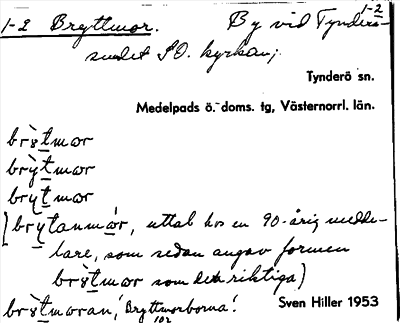 1-2
1-2 Bryttmor. By vid Tynderö-
sundet SO. kyrkan;
Tynderö sn.
Medelpads ö. doms. tg, Västernorrl. län.
brỳt̲mar
brỳt̲mar
bryt̲mar
[brytanmár, uttal hos en 90-årig medde-
lare, som sedan angav formen
brỳt̲mar som den riktiga)
brỳt̲maran, 'Bryttmorborna'.
Sven Hiller 1953